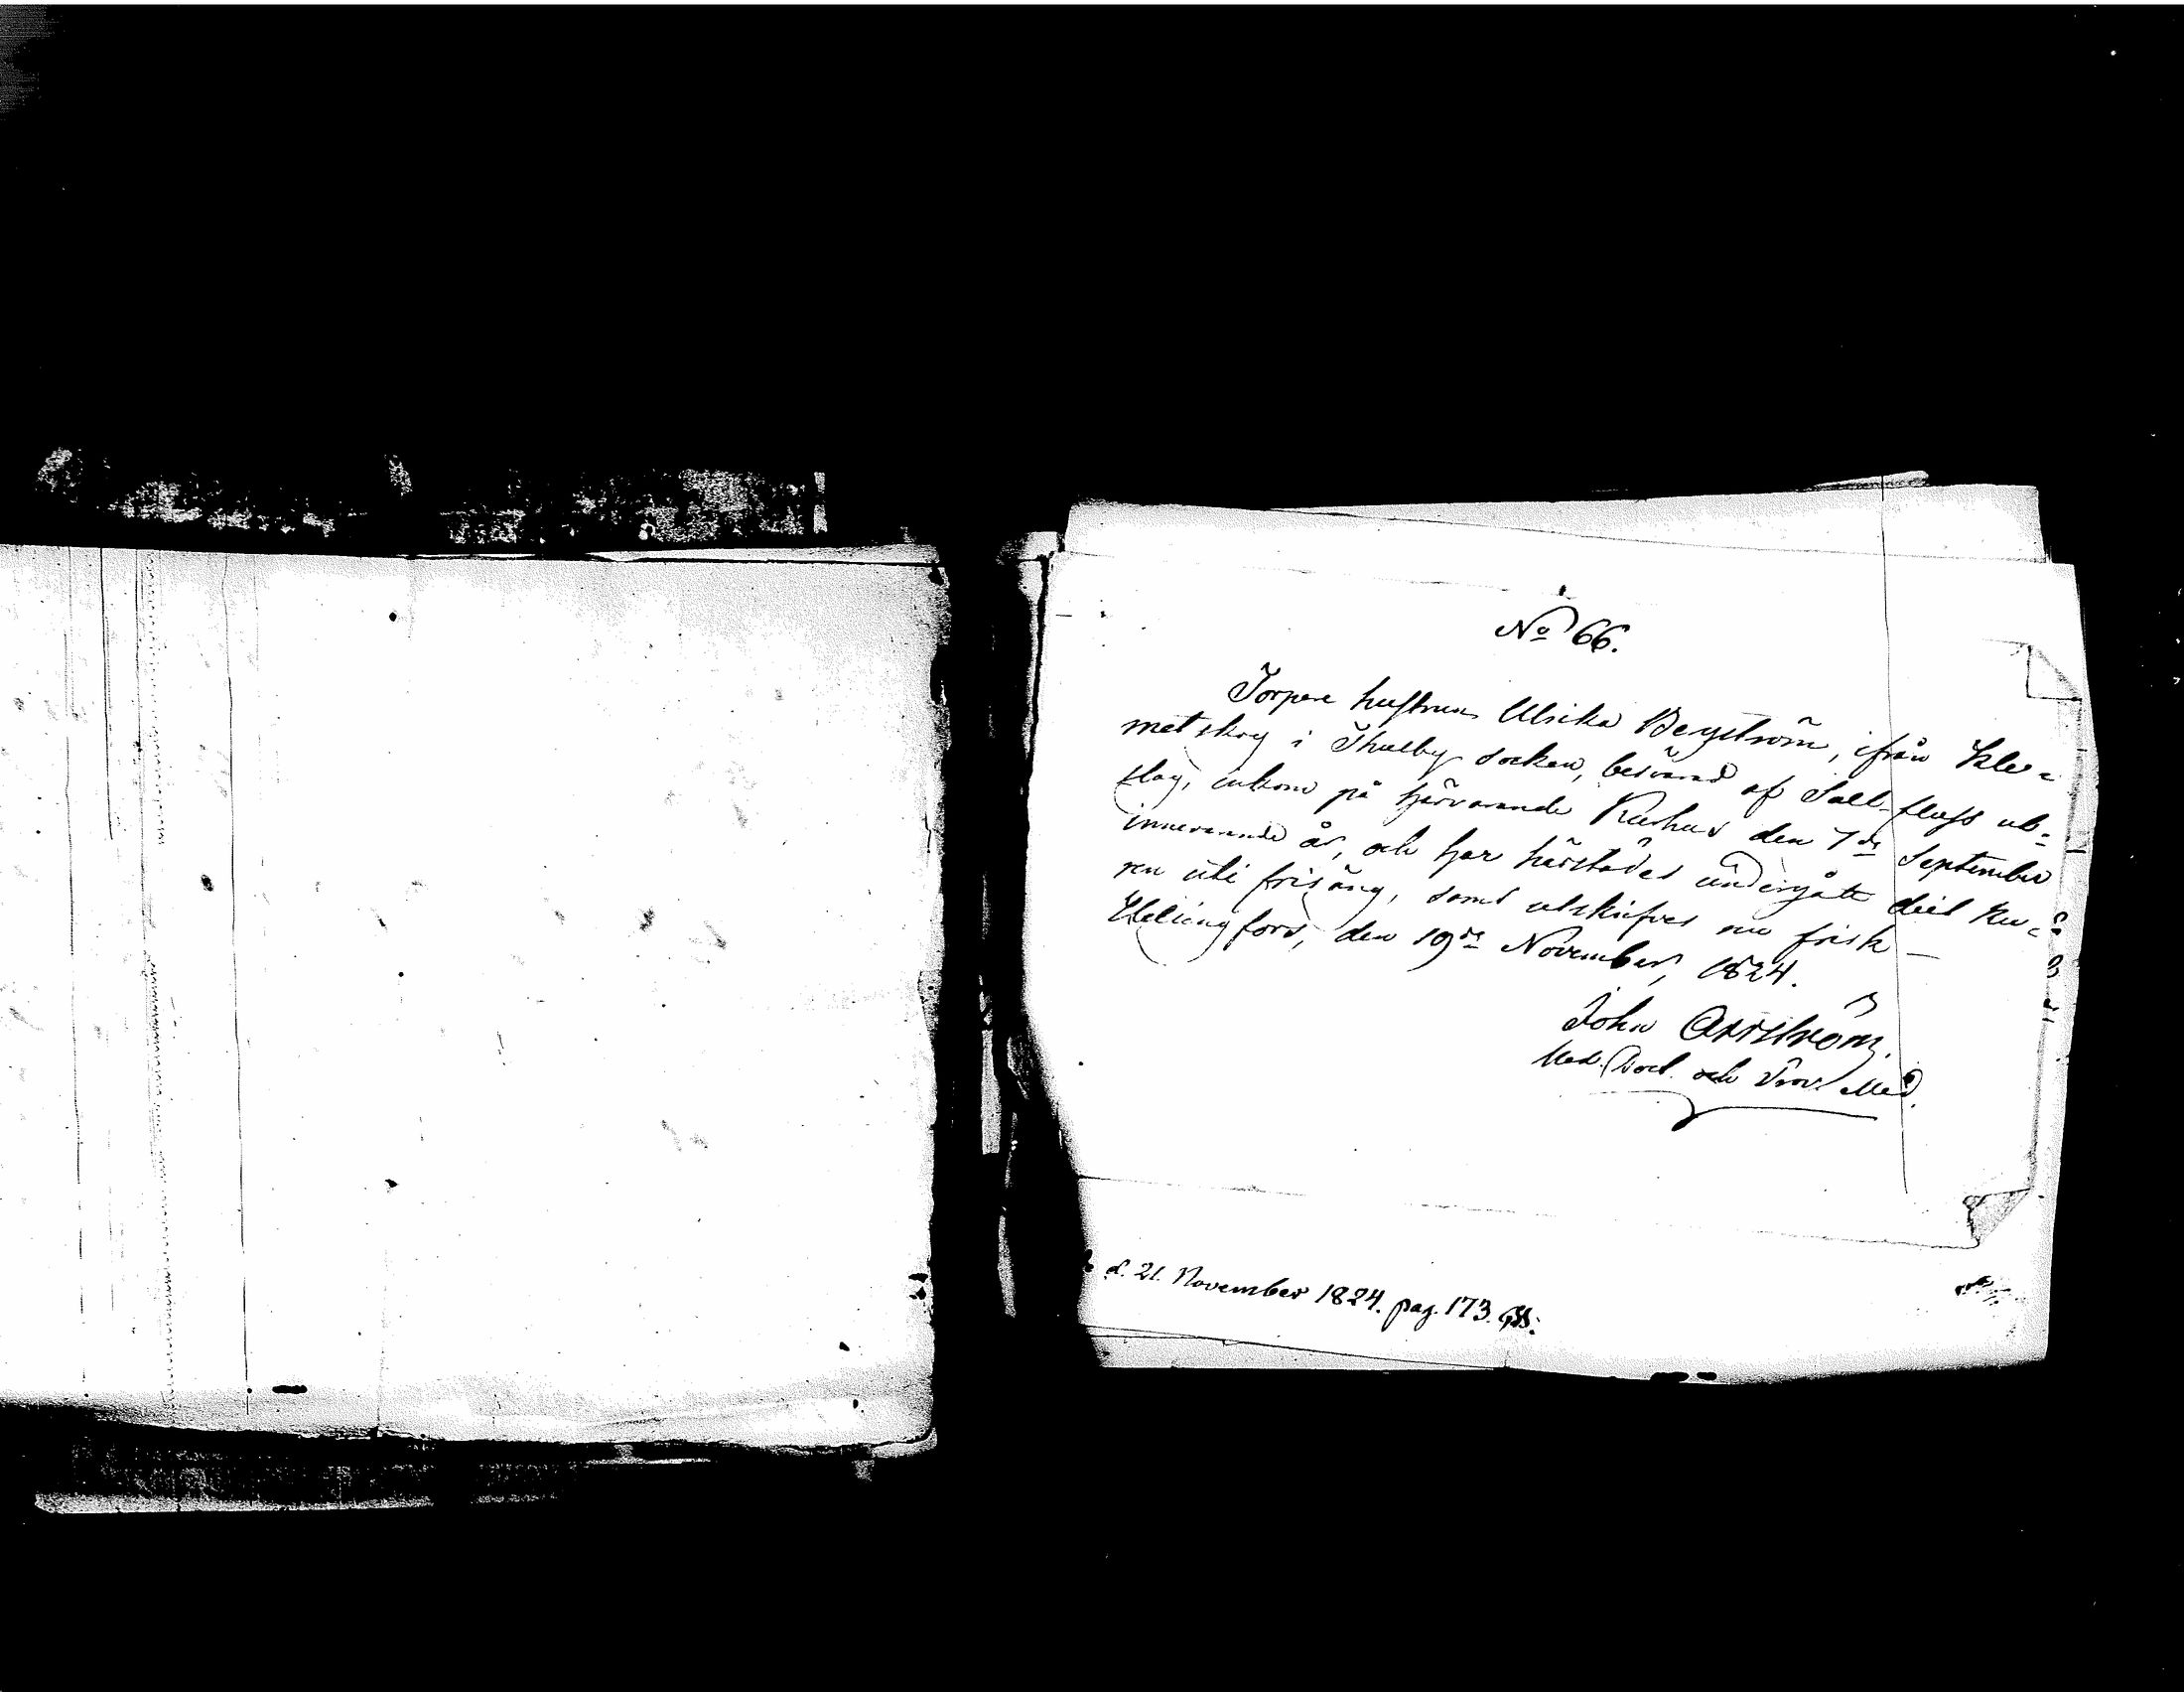 No 66.
Torpare hustrun Ulrika Bergström, ifrån Kle-
metskog i Thusby socken, besvärad af Salt-fluss ut-
slag, inkom på härvarande Kurhus den 7de September
innevarande år, och har härstädes undergått dess Ku-
ren uti frisäng, samt utskrifves nu frisk —
Helsingfors, den 19de November, 1824.
John Agrström
Med. Doct. och Prov. Med.
d. 21. November 1824. pag. 173.